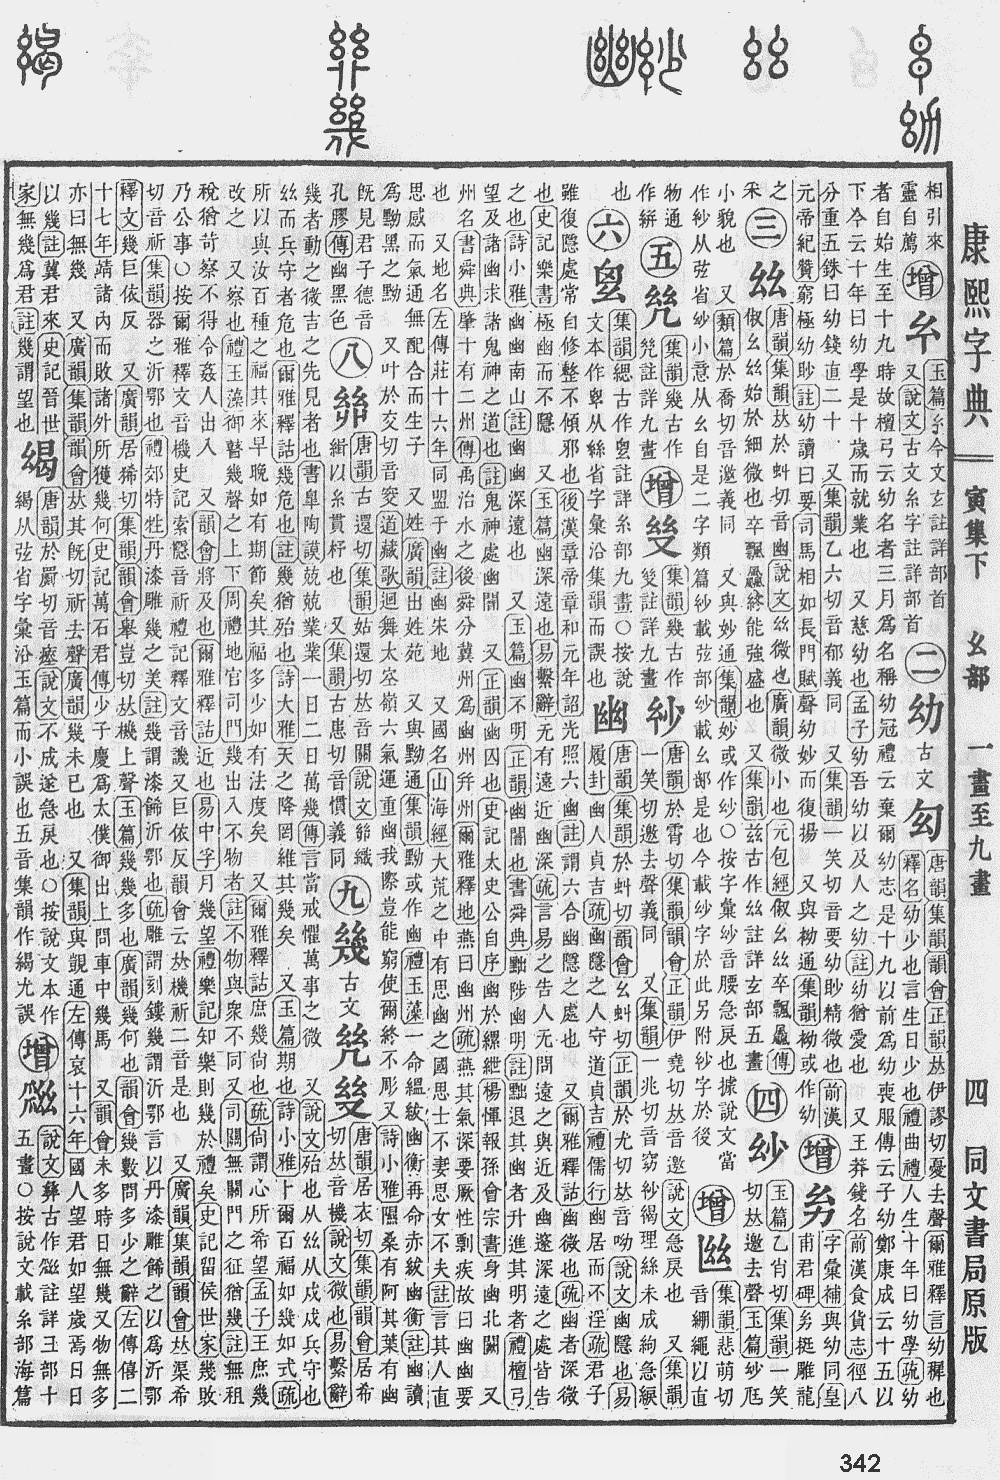 康熙字典 寅集下 幺部 一畫至九畫 四 同文書局原版
相引來
靈自薦
增
玉篇今文玄註詳部首
又說文古文糸字註詳部首
二 幼 古文
唐韻集韻韻會正韻𠀤伊謬切憂去聲爾雅釋言幼穉也
釋名幼少也言生日少也禮曲禮人生十年曰幼學疏幼
者自始生至十九時故檀弓云幼名者三月爲名稱幼冠禮云棄爾幼志是十九以前爲幼喪服傳云子幼鄭康成云十五以
下今云十年曰幼學是十歲而就業也 又慈幼也孟子幼吾幼以及人之幼註幼猶愛也 又王莽錢名前漢食貨志徑八
分重五銖曰幼錢直二十 又集韻乙六切音郁義同 又集韻一笑切音要幼眇精微也前漢
元帝紀贊窮極幼眇註幼讀曰要司馬相如長門賦聲幼妙而復揚
增
字彙補與幼同皇
甫君碑 挺雕龍
之
采
三 𢆶
唐韻集韻𠀤於虯切音幽說文𢆶微也廣韻微小也元包經俶幺𢆶卒飄飍傳
俶幺𢆶始於細微也卒飄飍終能強盛也 又集韻茲古作𢆶註詳玄部五畫
四
玉篇乙肖切集韻一笑
切𠀤邀去聲玉篇 尫
小貌也 又類篇於喬切音邀義同 又與妙通集韻妙或作 ○按字彙 音腰急戾也據說文當
作 从弦省 小意从幺自是二字類篇 載弦部 載幺部是也今載 字於此另附 字於後
增
集韻悲萌切
音繃繩以直
物通
作絣
五
集韻幾古作
註詳九畫
增
集韻幾古作
註詳九畫
唐韻於霄切集韻韻會正韻伊堯切𠀤音邀說文急戾也 又集韻
一笑切邀去聲義同 又集韻一兆切音窈 理絲未成絇急綟
也
六
集韻緦古作 註詳糸部九畫○按說
文本作 从絲省字彙沿集韻而誤也
幽
唐韻集韻於虯切韻會幺虯切正韻於尤切𠀤音呦說文幽隱也易
履卦幽人貞吉疏幽隱之人守道貞吉禮儒行幽居而不淫疏君子
雖復隱處常自修整不傾邪也後漢章帝章和元年詔光照六幽註謂六合幽隱之處也 又爾雅釋詁幽微也疏幽者深微
也史記樂書極幽而不隱 又玉篇幽深遠也易繫辭无有遠近幽深疏言易之告人无問遠之與近及幽邃深遠之處皆告
之也詩小雅幽幽南山註幽幽深遠也 又玉篇幽不明正韻幽闇也書舜典黜陟幽明註黜退其幽者升進其明者禮檀弓
望及諸幽求諸鬼神之道也註鬼神處幽闇 又正韻幽囚也史記太史公自序幽於縲紲楊惲報孫會宗書身幽北闕 又
州名書舜典肇十有二州傳禹治水之後舜分冀州爲幽州幷州爾雅釋地燕曰幽州疏燕其氣深要厥性剽疾故曰幽幽要
也 又地名左傳莊十六年同盟于幽註幽宋地 又國名山海經大荒之中有思幽之國思士不妻思女不夫註言其人直
思感而氣通無配合而生子 又姓廣韻出姓苑 又與黝通集韻黝或作幽禮玉藻一命縕韍幽衡再命赤韍幽衡註幽讀
爲黝黑之黝 又叶於交切音窔道藏歌迴舞太空嶺六氣運重幽我際豈能窮使爾終不彫又詩小雅隰桑有阿其葉有幽
旣見君子德音
孔膠傳幽黑色
八
唐韻古還切集韻姑還切𠀤音關說文 織
緝以糸貫杼也 又集韻古患切音慣義同
九 幾 古文
唐韻居衣切集韻韻會居希
切𠀤音機說文微也易繫辭
幾者動之微吉之先見者也書皐陶謨兢兢業業一日二日萬幾傳言當戒懼萬事之微 又說文殆也从𢆶从戍戍兵守也
𢆶而兵守者危也爾雅釋詁幾危也註幾猶殆也詩大雅天之降罔維其幾矣 又玉篇期也詩小雅卜爾百福如幾如式疏
所以與汝百種之福其來早晚如有期節矣其福多少如有法度矣 又爾雅釋詁庶幾尙也疏尙謂心所希望孟子王庶幾
改之 又察也禮玉藻御瞽幾聲之上下周禮地官司門幾出入不物者註不物與衆不同又司關無關門之征猶幾註無租
稅猶苛察不得令姦人出入 又韻會將及也爾雅釋詁近也易中孚月幾望禮樂記知樂則幾於禮矣史記留侯世家幾敗
乃公事○按爾雅釋文音機史記索隱音祈禮記釋文音譏又巨依反韻會云𠀤機祈二音是也 又廣韻集韻韻會𠀤渠希
切音祈集韻器之沂鄂也禮郊特牲丹漆雕幾之美註幾謂漆飾沂鄂也疏雕謂刻鏤幾謂沂鄂言以丹漆雕飾之以爲沂鄂
釋文幾巨依反 又廣韻居狶切集韻韻會舉豈切𠀤機上聲玉篇幾幾多也廣韻幾何也韻會幾數問多少之辭左傳僖二
十七年靖諸內而敗諸外所獲幾何史記萬石君傳少子慶爲太僕御出上問車中幾馬 又韻會未多時日無幾又物無多
亦曰無幾 又廣韻集韻韻會𠀤其旣切祈去聲廣韻幾未已也 又集韻與覬通左傳哀十六年國人望君如望歲焉日日
以幾註冀君來史記晉世
家無幾爲君註幾謂望也
唐韻於罽切音瘞說文不成遂急戾也○按說文本作
从弦省字彙沿玉篇而小誤也五音集韻作 尤誤
增
說文彝古作 註詳彐部十
五畫○按說文載糸部海篇
342